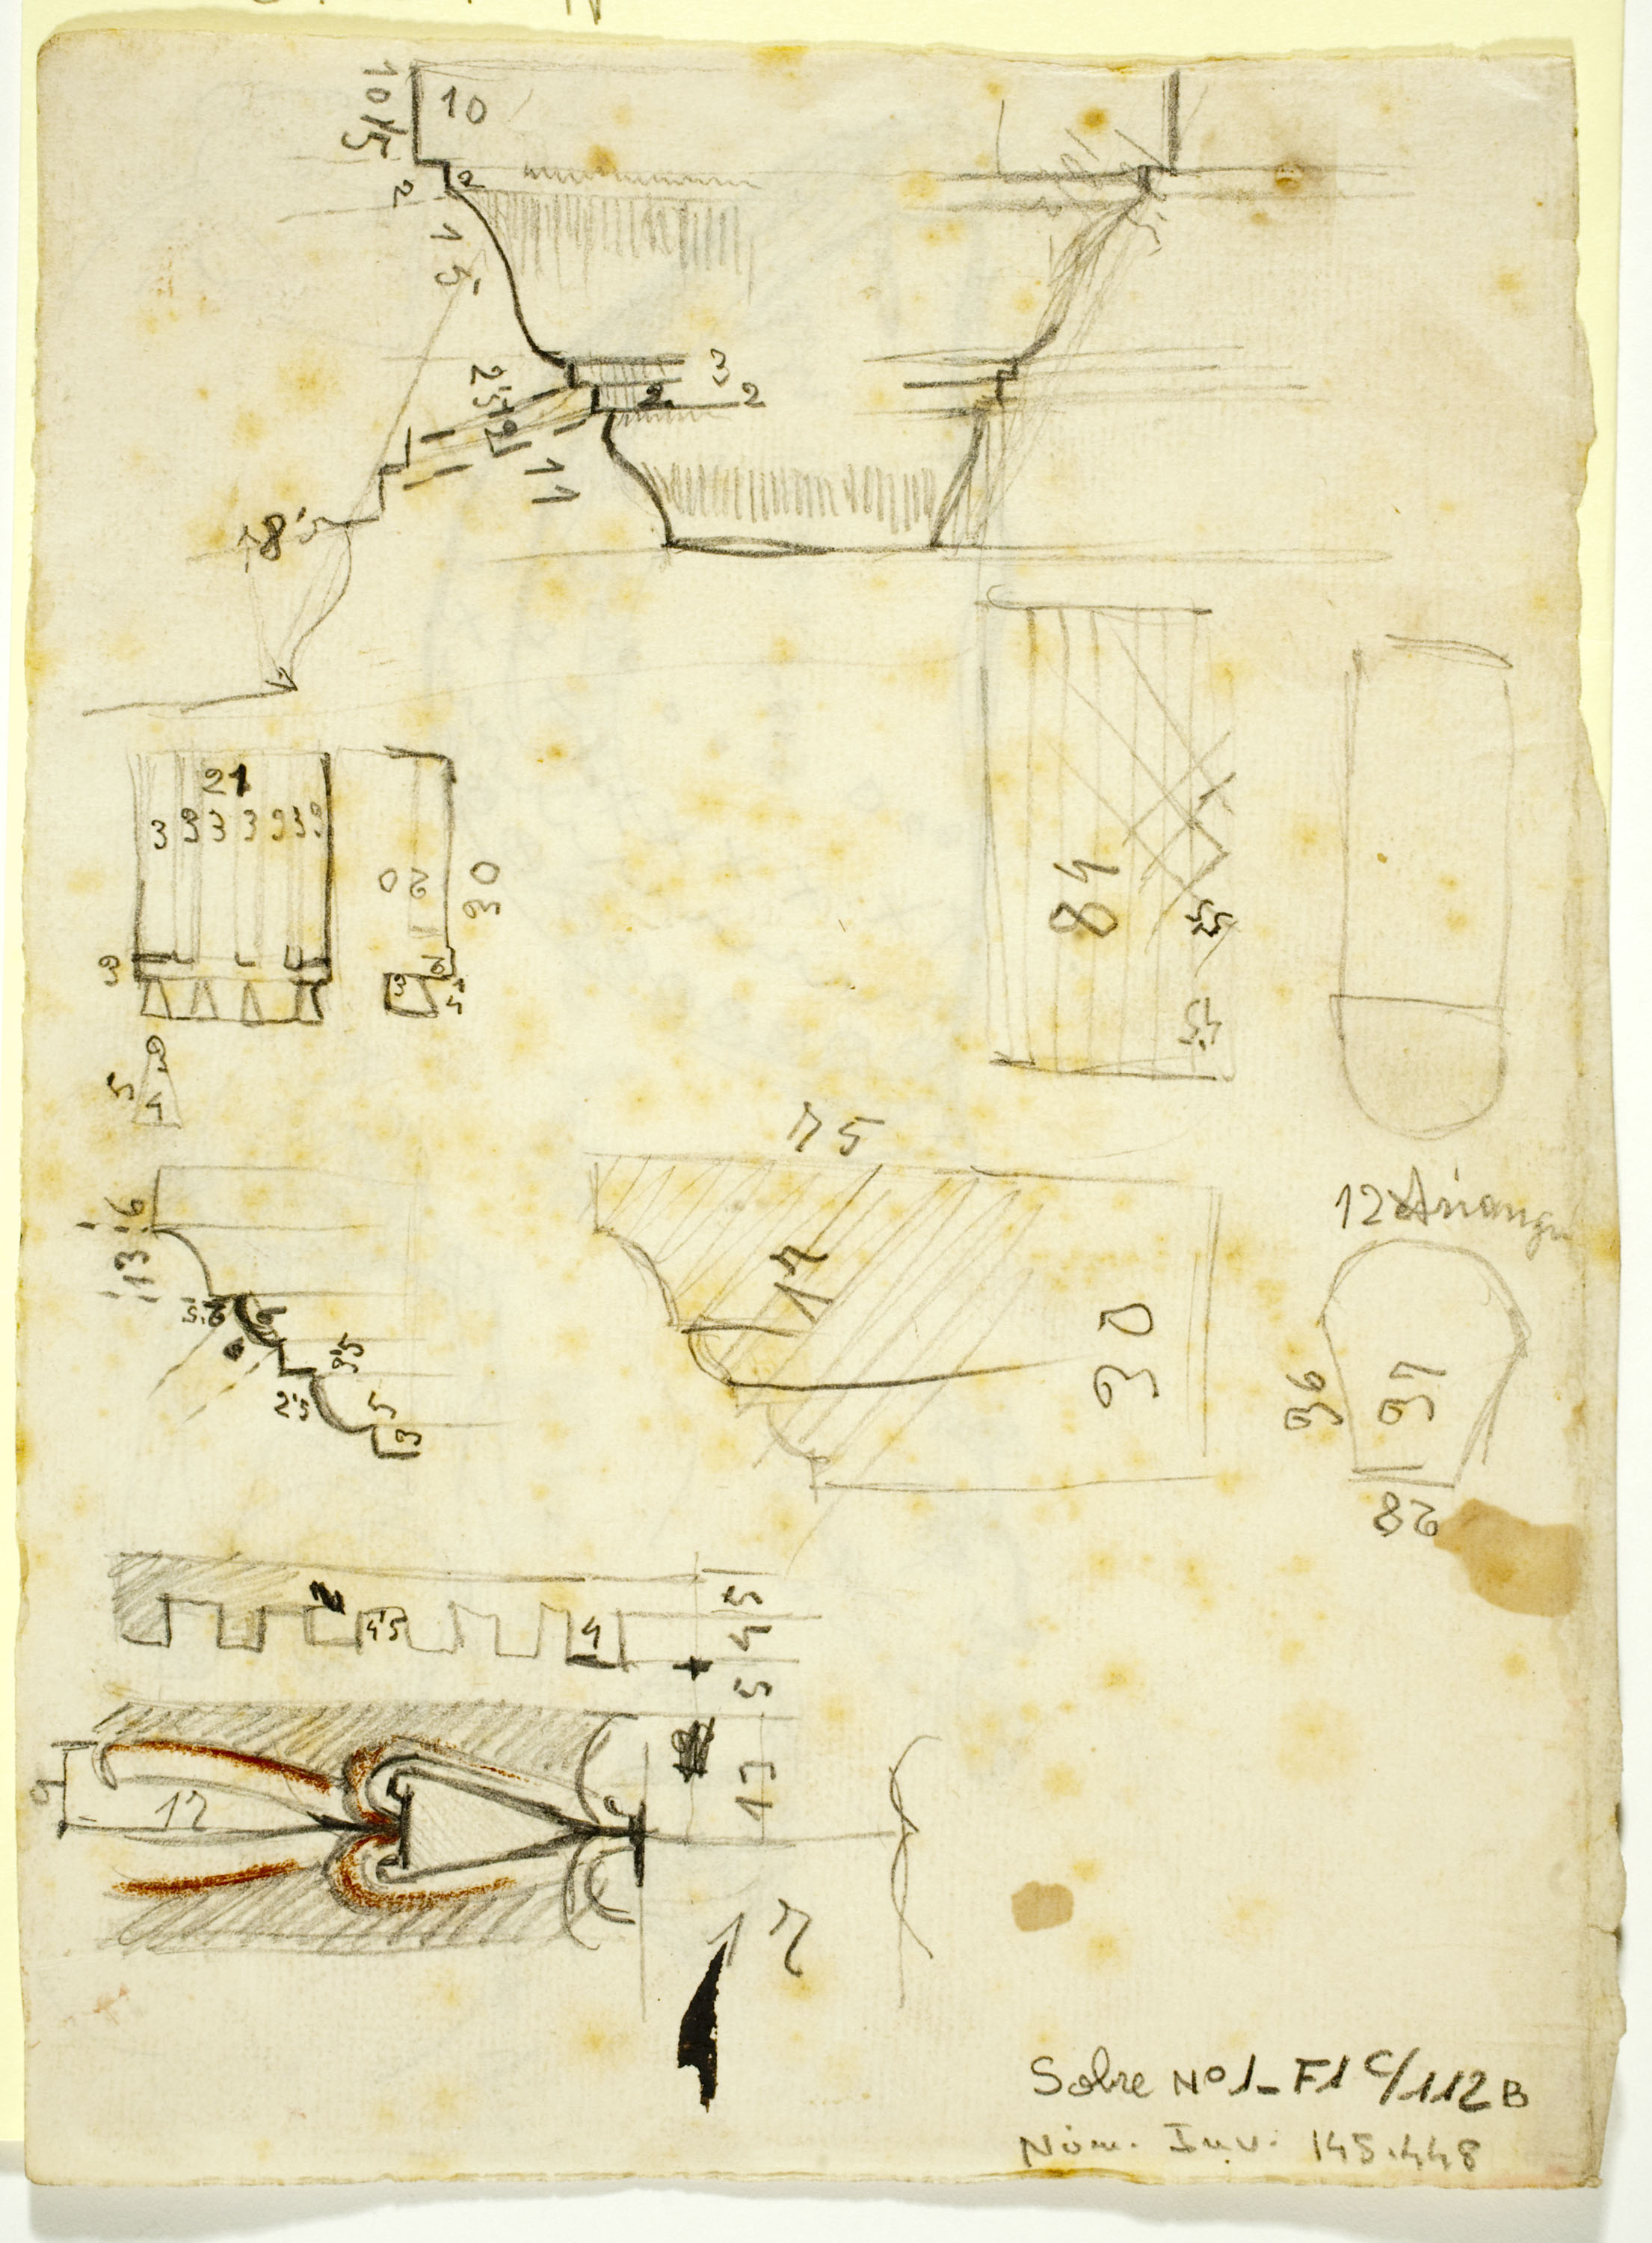 10'5
10
2
2
15'
3
2'5
2
2
11
18'5
21
3 3 3 3 3 3
2
30
3
2
3
4
3
5
4
84
5'5
4'5
75
17
30
12 triang
36
37
28
6
13
5'2
6
3'5
2'5
5
3
4'5
4
5
4
5
9
17
13
17
Sobre Nº 1_ F1 C/112 B
Núm. Inv. 145.448